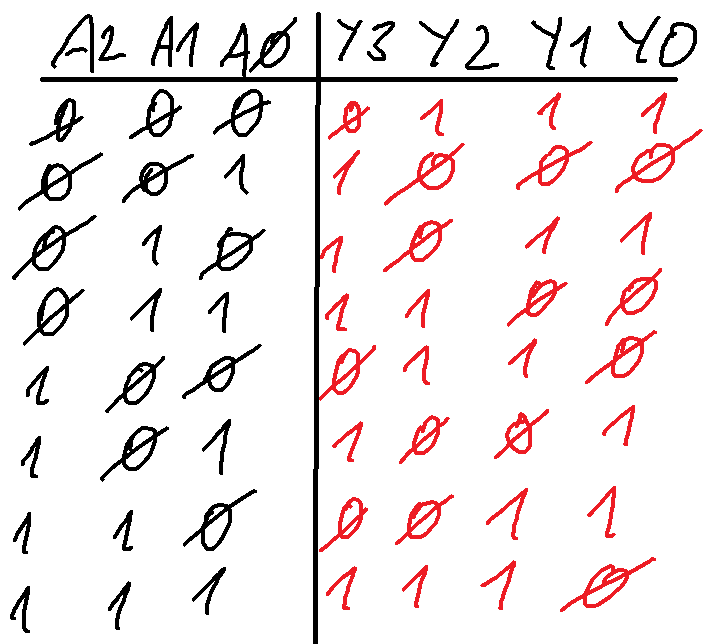 A2 A1 A0 Y3 Y2 Y1 Y0
0 0 0 0 1 1 1
0 0 1 1 0 0 0
0 1 0 1 0 1 1
0 1 1 1 1 0 0
1 0 0 0 1 1 0
1 0 1 1 0 0 1
1 1 0 0 0 1 1
1 1 1 1 1 1 0